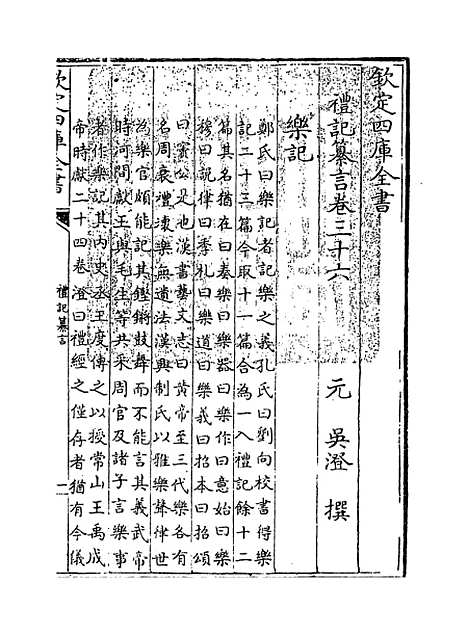 欽定四庫全書
禮記纂言卷三十六
元 吳澄 撰
樂記
鄭氏曰樂記者記樂之義孔氏曰劉向校書得樂
記二十三篇今取十一篇合為一入禮記餘十二
篇其名猶在曰奏樂曰樂器曰樂作曰意始曰樂
穆曰說律曰季札曰樂道曰樂義曰招本曰招頌
曰竇公是也漢書藝文志曰黃帝至三代樂各有
名周衰禮壞樂無遺法漢興制氏以雅樂聲律世
為樂官頗能記其鏗鏘鼓舞而不能言其義武帝
時河間獻王與毛生等共采周官及諸子言樂事
者作樂記其内史丞王度傳之以授常山王禹成
帝時獻二十四卷澄曰禮經之僅存者猶有今儀
欽定四庫全書
禮記纂言
一